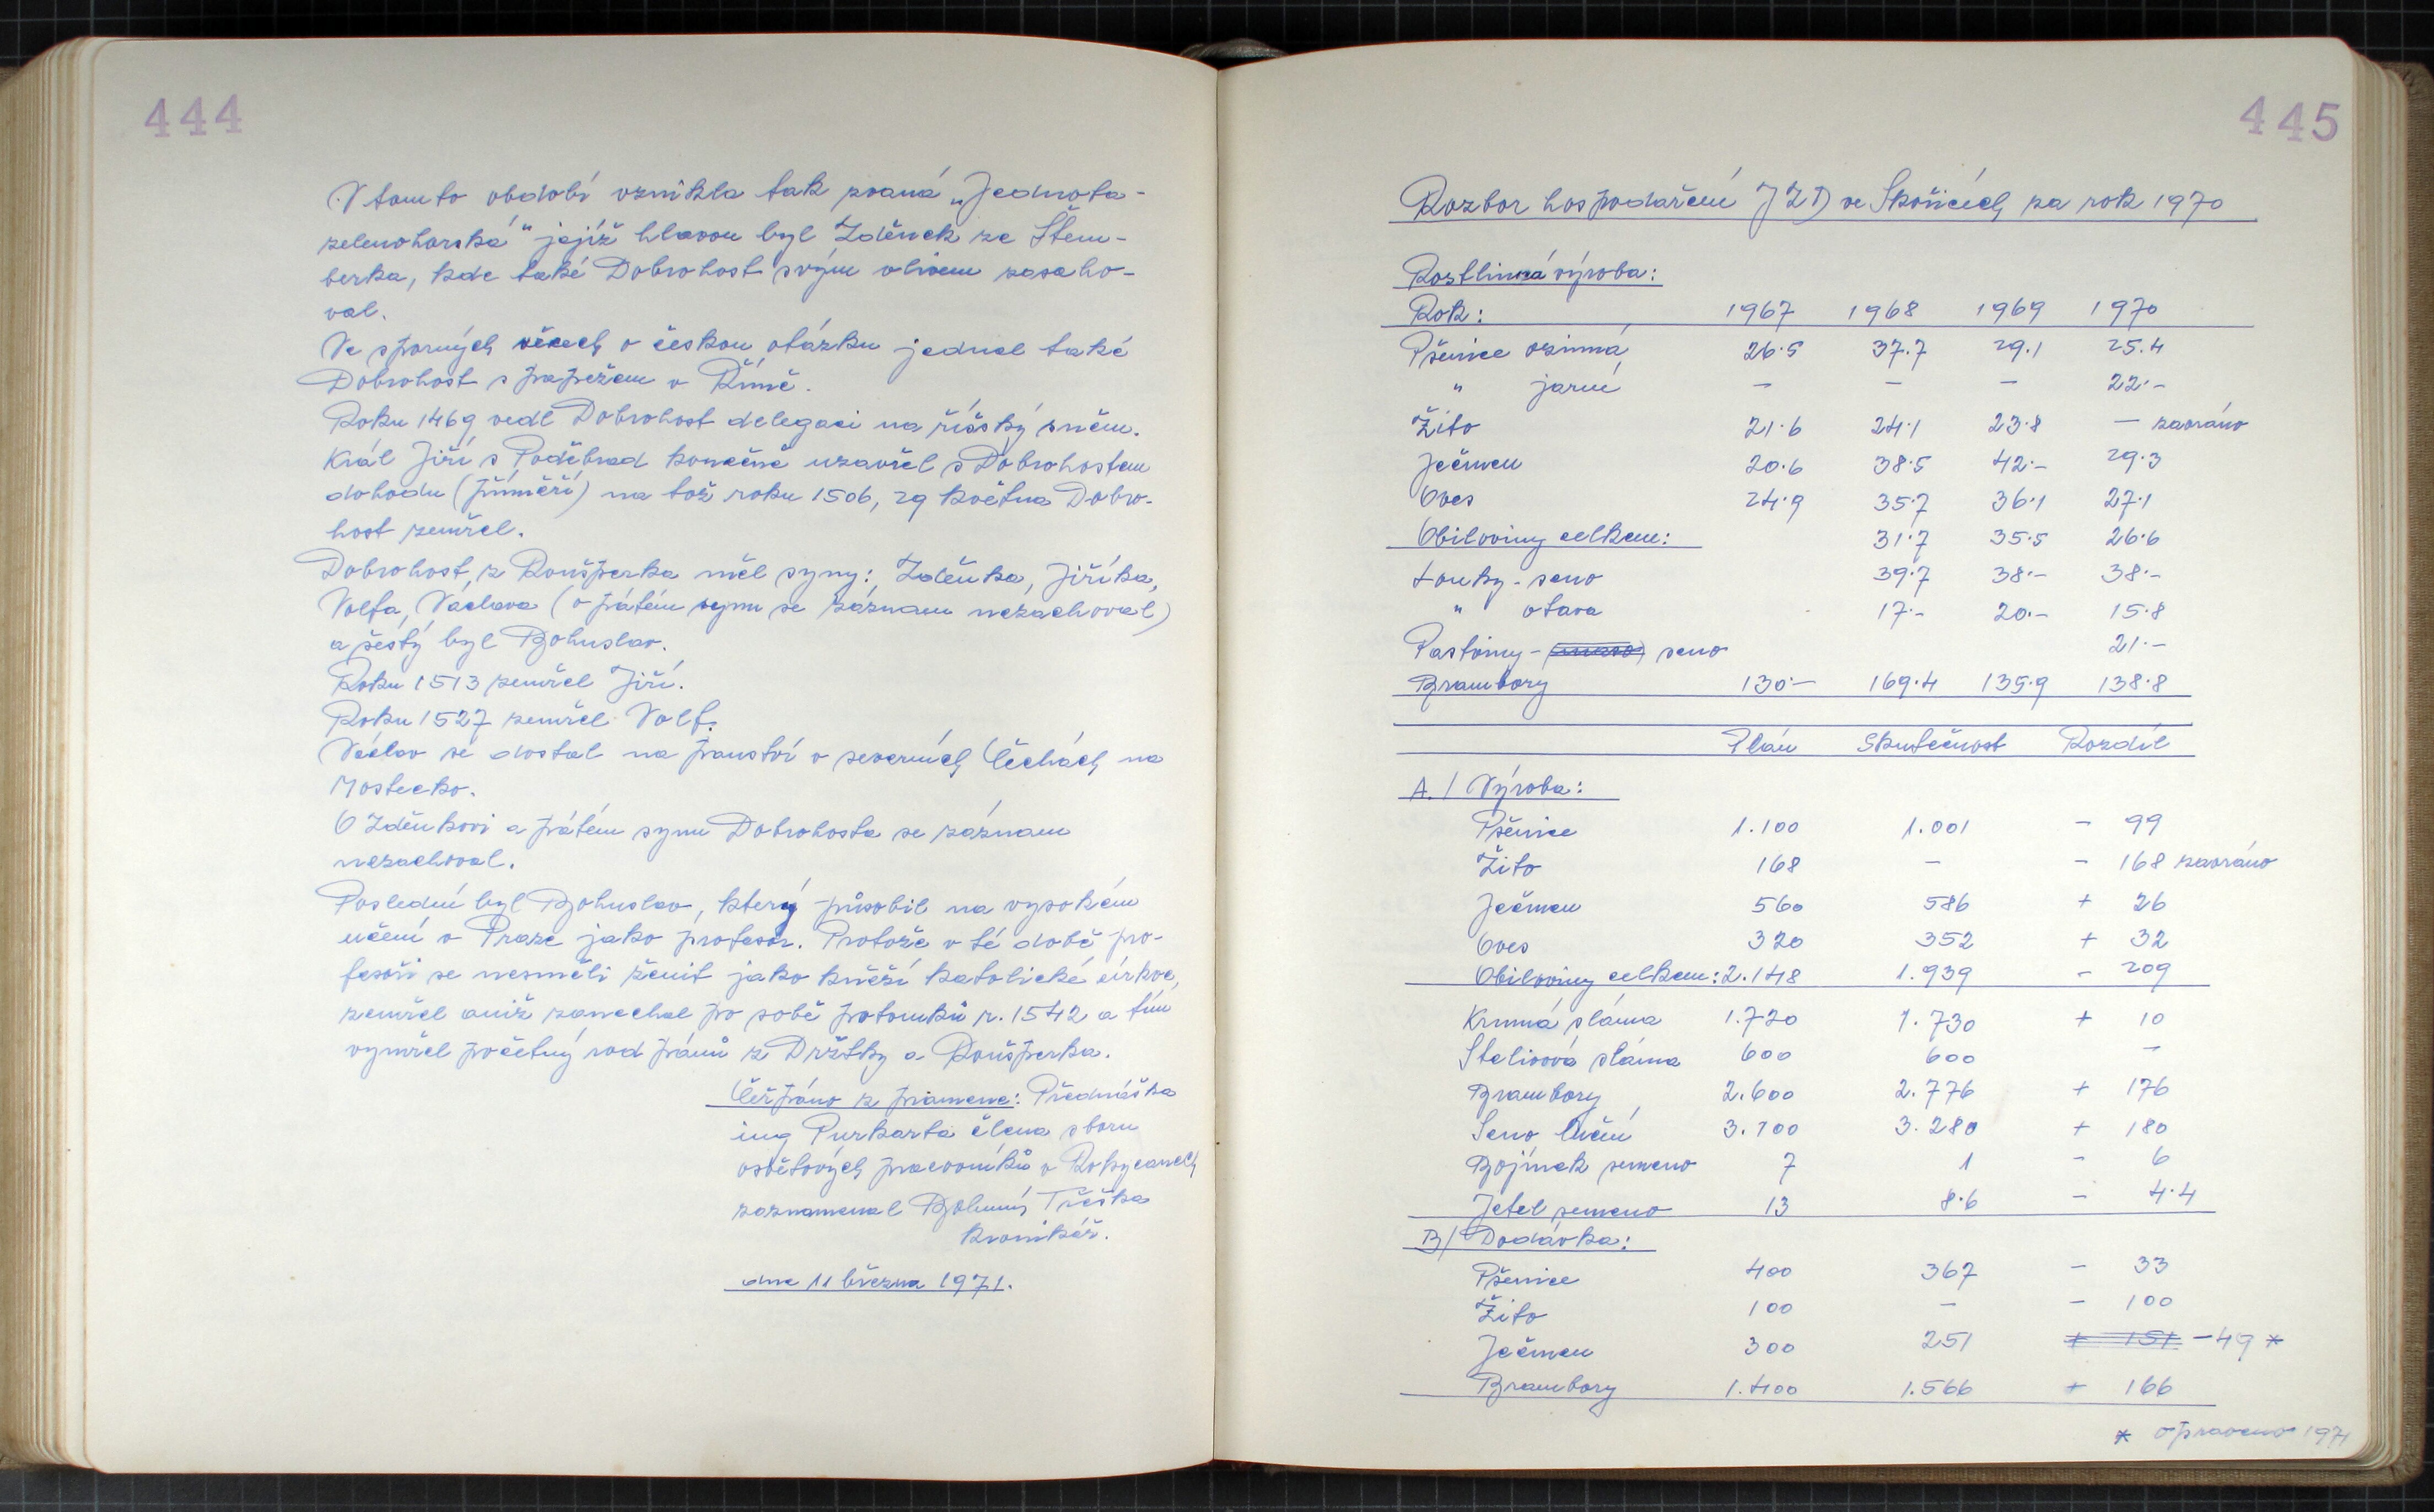 444
V tomto období vznikla tak zvaná „Jednota-
zelenohorská" jejíž hlavou byl Zděnek ze Štem-
berka, kde také Dobrohost svým vlivem zasaho-
val.
Ve sporných věcech o českou otázku jednal také
Dobrohost s papežem v Římě.
Roku 1469 vedl Dobrohost delegaci na říšský sněm.
Král Jiří s Poděbrad konečně uzavřel s Dobrohostem
dohodu (příměří) na tož roku 1506, 29 května Dobro-
host zemřel.
Dobrohost z Ronšperka měl syny: Zděnka, Jiříka,
Volfa, Václava (o pátém synu se záznam nezachoval)
a šestý byl Bohuslav.
Roku 1513 zemřel Jiří.
Roku 1527 zemřel Volf.
Václav se dostal na panství v severních Čechách na
Mostecko.
O Zděnkovi a pátém synu Dobrohosta se záznam
nezachoval.
Poslední byl Bohuslav, který působil na vysokém
učení v Praze jako profesor. Protože v té době pro-
fesoři se nesměli ženit jako kněží katolické církve,
zemřel aniž zanechal po sobě potomků r. 1542 a tím
vymřel početný rod pánů z Držtky a Ronšperka.
Čerpáno z pramene: Přednáška
ing Purkarta člena sboru
osvětových pracovníků v Rokycanech
zaznamenal Bohumís Třeška
kronikář.
dne 11 března 1971.
445
Rozbor hospodaření JZD ve Skořicích za rok 1970
Rostlinná výroba:
Rok: 1967 1968 1969 1970
Pšenice ozimná 26·5 37·7 29.1 25.4
" jarní – – – 22·–
Žito 21·6 24·1 23·8 – zaoráno
Ječmen 20·6 38·5 42·– 29·3
Oves 24·9 35·7 36·1 27·1
Obiloviny celkem: 31·7 35·5 26·6
Louky - seno 39·7 38·– 38·–
" otava 17·– 20·– 15·8
Pastviny - seno 21·–
Brambory 130·– 169·4 139·9 138·8
Plán Skutečnost Rozdíl
A./ Výroba:
Pšenice 1.100 1.001 – 99
Žito 168 – – 168 zaoráno
Ječmen 560 586 + 26
Oves 320 352 + 32
Obiloviny celkem: 2.148 1.939 – 209
Krmná sláma 1.720 1.730 + 10
Stelivová sláma 600 600 –
Brambory 2.600 2.776 + 176
Seno luční 3.100 3.280 + 180
Bojínek semeno 7 1 – 6
Jetel semeno 13 8·6 – 4·4
B/ Dodávka:
Pšenice 400 367 – 33
Žito 100 – – 100
Ječmen 300 251 + 151 –49 *
Brambory 1.400 1.566 + 166
* opraveno 1971